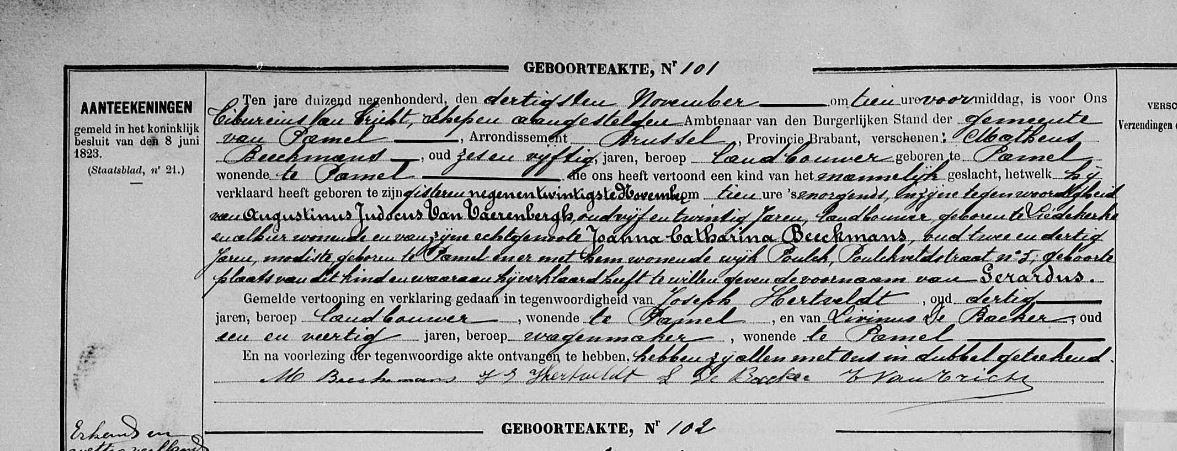 GEBOORTEAKTE, Nr 101
AANTEEKENINGEN
gemeld in het koninklijk
besluit van den 8 juni
1823.
(Staatsblad, n° 21.)
VERSC
Verzendingen
Ten jare duizend negenhonderd, den dertigsten November om tien ure voormiddag, is voor Ons
Tibureins Van Cricht, schepen aangestelden Ambtenaar van den Burgerlijken Stand der gemeente
van Pamel, Arrondissement Brussel, Provincie Brabant, verschenen: Matheus
Beeckmans, oud zes en vyftig, jaren, beroep Landbouwer geboren te Pamel
wonende te Pamel die ons heeft vertoond een kind van het mannelijk geslacht, hetwelk hy
verklaard heeft geboren te zijn gisteren negenentwintigste November om tien ure 's morgends, in zijne tegenwoordigheid
van Augustinus Judocus Van Vaerenbergh, oud vijf en twintig Jaren, Landbouwer, geboren te Liedekerke
en alhier wonende en van zijne echtgenote Joanna Catharina Beeckmans, oud twee en dertig
Jaren, modiste geboren te Pamel en er met hem wonende wijk Poulck, Poulckveldstraat n° 3, geboorte
plaats van dit kind en waaraan hij verklaard heeft te willen geven de voornaam van Gerardus.
Gemelde vertooning en verklaring gedaan in tegenwoordigheid van Joseph Hertveldt, oud dertig
jaren, beroep Landbouwer, wonende te Pamel, en van Livinus De Backer, oud
een en veertig jaren, beroep wagenmaker, wonende te Pamel
En na voorlezing der tegenwoordige akte ontvangen te hebben, hebben zy allen met Ons in dubbel geteekend.
M Beeckmans J J Hertveldt L De Backer T Van Cricht
Erkend en
GEBOORTEAKTE, Nr 102